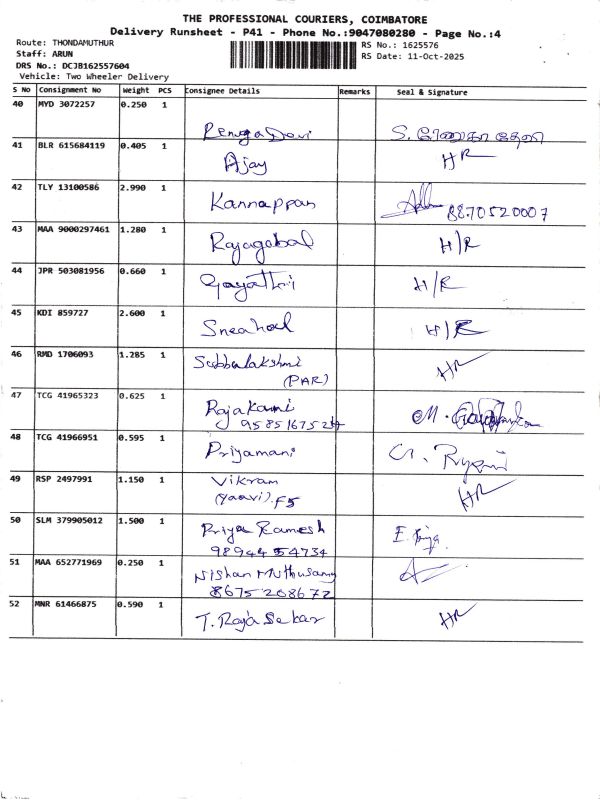 THE PROFESSIONAL COURIERS, COIMBATORE
Delivery Runsheet - P41 - Phone No.:9047080280 - Page No.:4
Route: THONDAMUTHUR
Staff: ARUN
DRS No.: DCJB162557604
Vehicle: Two Wheeler Delivery
RS No.: 1625576
RS Date: 11-Oct-2025
S No Consignment No Weight PCS Consignee Details Remarks Seal & Signature
40 MYD 3072257 0.250 1
Renuga Devi S.
41 BLR 615684119 0.405 1
Ajay HR
42 TLY 13100586 2.990 1
Kannappan 8870520007
43 MAA 9000297461 1.280 1
Rajagobal H/R
44 JPR 503081956 0.660 1
Gayathri H/R
45 KDI 859727 2.600 1
Sneahal H/R
46 RMD 1706093 1.285 1
Subbulakshmi HR
(PAR)
47 TCG 41965323 0.625 1
Rajakani M.
9585167524
48 TCG 41966951 0.595 1
Priyamani
49 RSP 2497991 1.150 1
Vikram HR
(Yaavi). F5
50 SLM 379905012 1.500 1
Priya Ramesh E. Priya.
9894454734
51 MAA 652771969 0.250 1
Nishan Muthusamy
8675208672
52 MNR 61466875 0.590 1
T. Raja Sekar HR